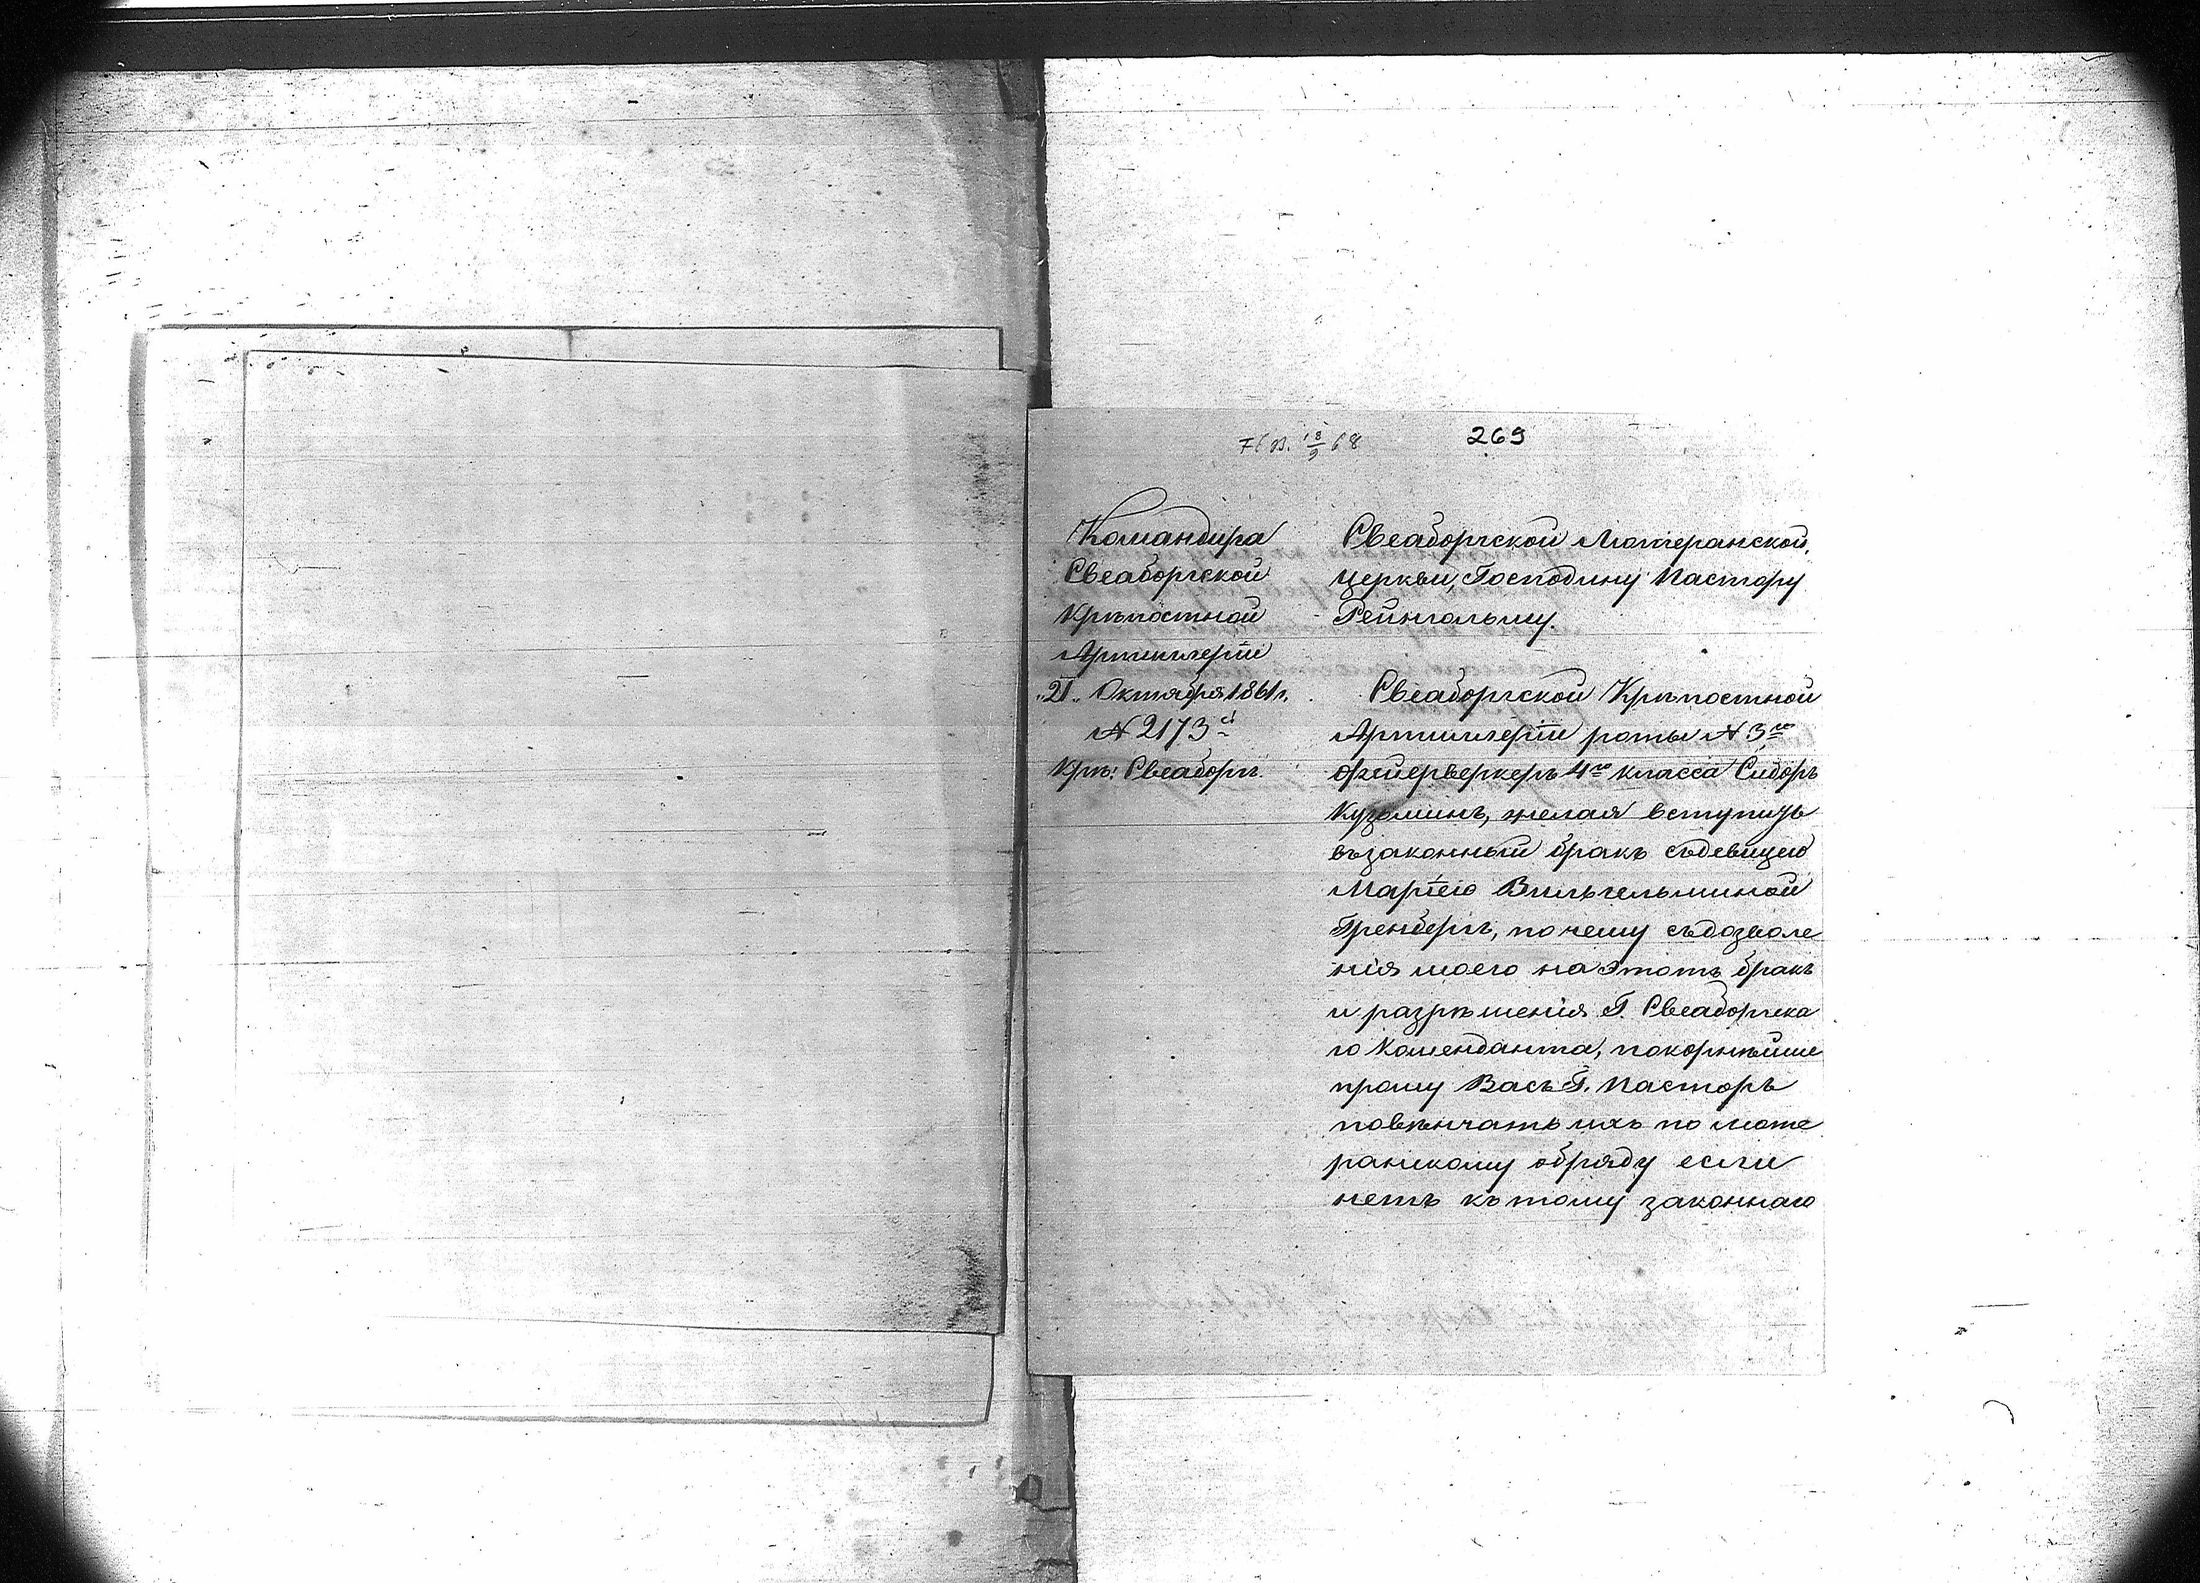 269
Командира
Свеаборгской
Крѣпостной
Артиллеріи
„21„ Октября 1861 г.
№ 2173-й
Крѣ: Свеаборгъ.
Свеаборгской Лютеранской
церкви, Господину Пастору
Рейнгольму.
Свеаборгской Крѣпостной
Артиллеріи роты № 3го
фейерверкеръ 4го класса Сидоръ
Кузьминъ, желая вступить
въ законный бракъ съ девицею
Маріею Вильгельминой
Гренбергъ, по чему съ дозволе
нія моего на этотъ бракъ
и разрѣшенія Г. Свеаборгска
го Коменданта, покорнѣйше
прошу Васъ Г. Пасторъ
повѣнчать ихъ по люте
ранскому обряду если
нетъ къ тому законнаго